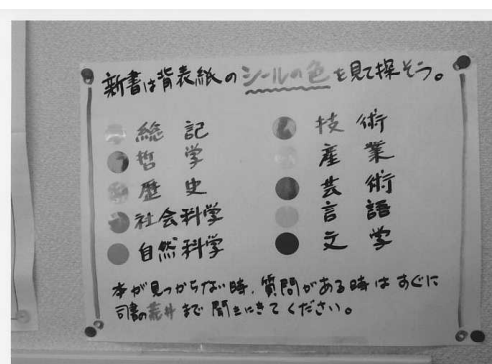 新書は背表紙のシールの色を見て探そう。
総記
哲学
歴史
社会科学
自然科学
技術
産業
芸術
言語
文学
本が見つからない時、質問がある時はすぐに
司書の荒井まで聞きにきてください。